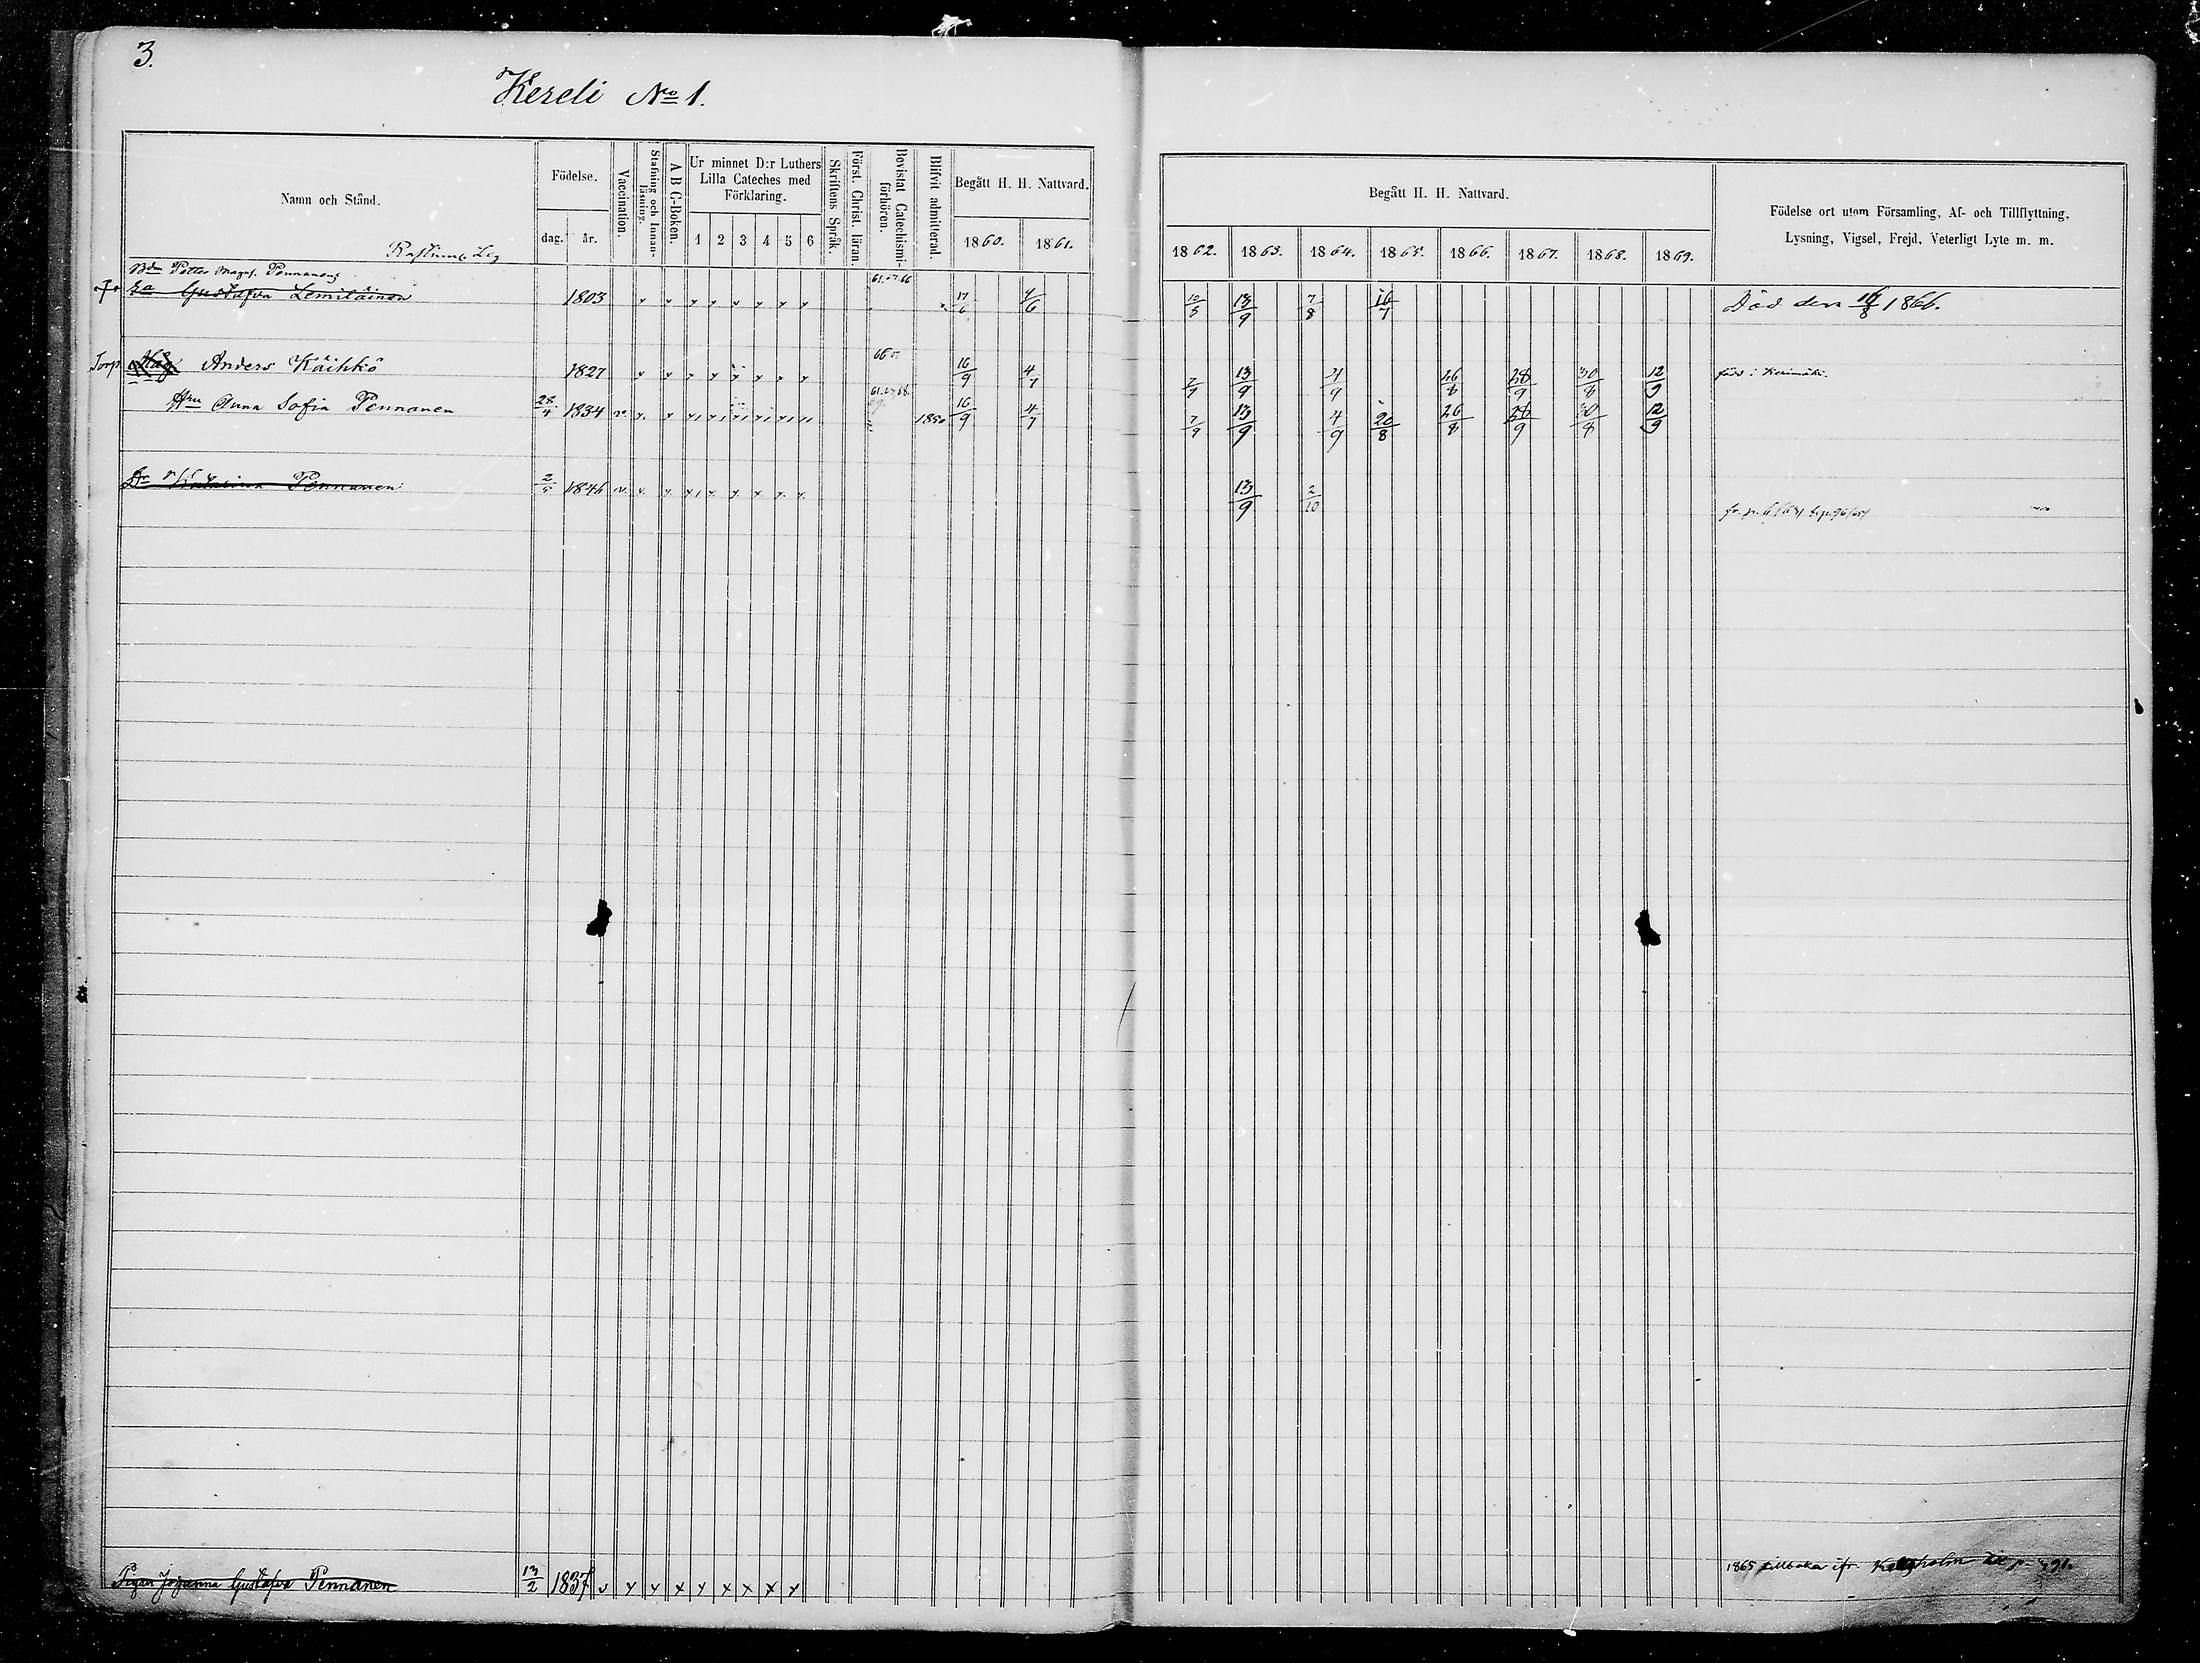 3.
Kereli No 1.
Namn och Stånd.
Födelse.
dag. år.
Vaccination.
Stafning och Innan-läsning.
A B C-Boken.
Ur minnet D:r Luthers Lilla Cateches med Förklaring.
1 2 3 4 5 6
Skriftens Språk.
Först. Christ. läran.
Bevistat Catechismi-förhören.
Blifvit admitterad.
Begått H. H. Nattvard.
1860. 1861.
Begått H. H. Nattvard.
1862. 1863. 1864. 1865. 1866. 1867. 1868. 1869.
Födelse ort utom Församling, Af- och Tillflyttning,
Lysning, Vigsel, Frejd, Veterligt Lyte m. m.
Bdn Petter Magns. Pennanens
Gustafva Lemiläinen 1803 17/6 4/6 10/5 13/9 7/8 16/7 Död den 16/8 1866.
Torp. Anders Käihkö 1827 16/9 4/7 7/9 13/9 4/9 26/8 28/9 30/8 12/9 född i Kerimäki.
Hru Anna Sofia Pennanen 28/4 1834 v. 1850 16/9 4/7 7/9 13/9 4/9 20/8 26/8 28/9 30/8 12/9
Dr Katarina Pennanen 2/5 1846 v. 13/9 2/10
Pigan Johanna Gustafva Pennanen 13/2 1837 v 1865 tillbaka ifr. Kexholm